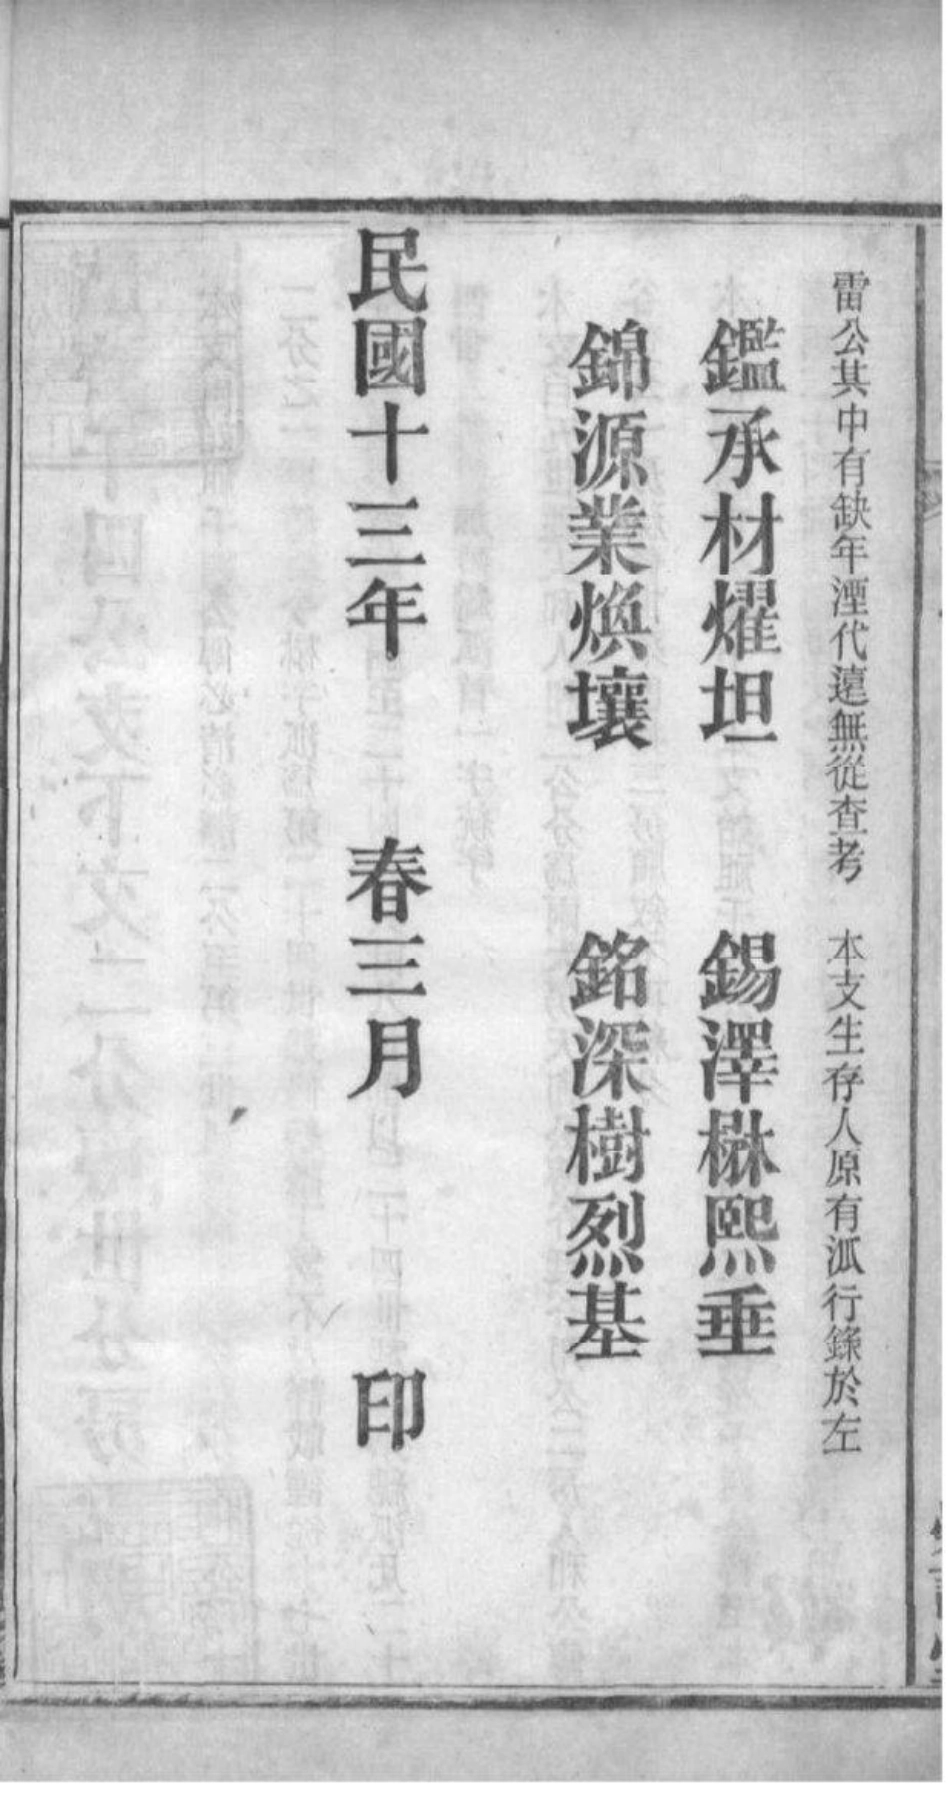 雷公其中有缺年湮代遠無從查考 本支生存人原有派行錄於左
鑑承材燿坦 錫澤楙熙垂
錦源業煥壤 銘深樹烈基
民國十三年 春三月 印